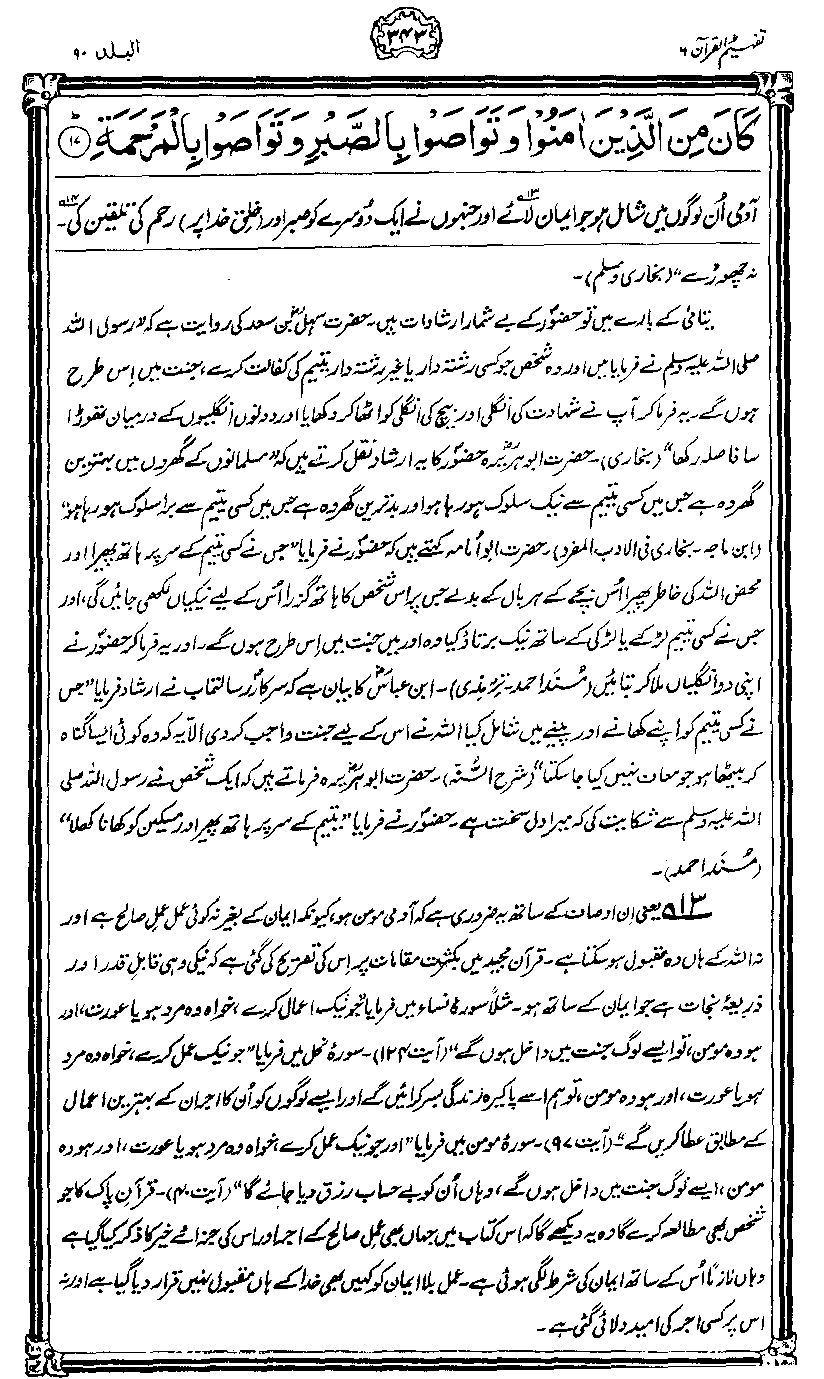 تفہیم القرآن ۶
۳۴۳
البلد ۹۰
كَانَ مِنَ الَّذِيْنَ اٰمَنُوْا وَتَوَاصَوْا بِالصَّبْرِ وَتَوَاصَوْا بِالْمَرْحَمَةِ ۱۷
آدمی اُن لوگوں میں شامل ہو جو ایمان لائے۱۳ اور جنہوں نے ایک دُوسرے کو صبر اور (خلقِ خدا پر) رحم کی تلقین کی۱۴۔
نہ چھوڑے“ (بخاری و مسلم)۔
یتامیٰ کے بارے میں تو حضورؐ کے بے شمار ارشادات ہیں۔ حضرت سہلؓ بن سعد کی روایت ہے کہ ”رسول اللہ
صلی اللہ علیہ وسلم نے فرمایا میں اور وہ شخص جو کسی رشتہ دار یا غیر رشتہ دار یتیم کی کفالت کرے، جنت میں اِس طرح
ہوں گے۔ یہ فرما کر آپ نے شہادت کی انگلی اور بیچ کی انگلی کو اٹھا کر دکھایا اور دونوں انگلیوں کے درمیان تھوڑا
سا فاصلہ رکھا“ (بخاری)۔ حضرت ابوہریرہؓ حضورؐ کا یہ ارشاد نقل کرتے ہیں کہ ”مسلمانوں کے گھروں میں بہترین
گھر وہ ہے جس میں کسی یتیم سے نیک سلوک ہو رہا ہو اور بدترین گھر وہ ہے جس میں کسی یتیم سے برا سلوک ہو رہا ہو“
(ابن ماجہ۔ بخاری فی الادب المفرد)۔ حضرت ابواُمامہ کہتے ہیں کہ حضورؐ نے فرمایا ”جس نے کسی یتیم کے سر پر ہاتھ پھیرا اور
محض اللہ کی خاطر پھیرا اُس بچے کے ہر بال کے بدلے جس پر اس شخص کا ہاتھ گزرا اُس کے لیے نیکیاں لکھی جائیں گی، اور
جس نے کسی یتیم لڑکے یا لڑکی کے ساتھ نیک برتاؤ کیا وہ اور میں جنت میں اِس طرح ہوں گے۔ اور یہ فرما کر حضورؐ نے
اپنی دو انگلیاں ملا کر بتائیں (مُسند احمد۔ ترمذی)۔ ابن عباسؓ کا بیان ہے کہ سرکارِ رسالتمآب نے ارشاد فرمایا ”جس
نے کسی یتیم کو اپنے کھانے اور پینے میں شامل کیا اللہ نے اس کے لیے جنت واجب کر دی الّا یہ کہ وہ کوئی ایسا گناہ
کر بیٹھا ہو جو معاف نہیں کیا جا سکتا“ (شرح السُّنّہ)۔ حضرت ابوہریرہؓ فرماتے ہیں کہ ایک شخص نے رسول اللہ صلی
اللہ علیہ وسلم سے شکایت کی کہ میرا دل سخت ہے۔ حضورؐ نے فرمایا ”یتیم کے سر پر ہاتھ پھیر اور مسکین کو کھانا کھلا“
(مُسند احمد)۔
۱۳ یعنی اِن اوصاف کے ساتھ یہ ضروری ہے کہ آدمی مومن ہو، کیونکہ ایمان کے بغیر نہ کوئی عمل عملِ صالح ہے اور
نہ اللہ کے ہاں وہ مقبول ہو سکتا ہے۔ قرآن مجید میں بکثرت مقامات پر اِس کی تصریح کی گئی ہے کہ نیکی وہی قابلِ قدر اور
ذریعۂ نجات ہے جو ایمان کے ساتھ ہو۔ مثلاً سورۂ نساء میں فرمایا ”جو نیک اعمال کرے، خواہ وہ مرد ہو یا عورت، اور
ہو وہ مومن، تو ایسے لوگ جنت میں داخل ہوں گے“ (آیت ۱۲۴)۔ سورۂ نحل میں فرمایا ”جو نیک عمل کرے، خواہ وہ مرد
ہو یا عورت، اور ہو وہ مومن، تو ہم اسے پاکیزہ زندگی بسر کرائیں گے اور ایسے لوگوں کو اُن کا اجر ان کے بہترین اعمال
کے مطابق عطا کریں گے“ (آیت ۹۷)۔ سورۂ مومن میں فرمایا ”اور جو نیک عمل کرے، خواہ وہ مرد ہو یا عورت، اور ہو وہ
مومن، ایسے لوگ جنت میں داخل ہوں گے، وہاں اُن کو بے حساب رزق دیا جائے گا“ (آیت ۴۰)۔ قرآنِ پاک کا جو
شخص بھی مطالعہ کرے گا وہ یہ دیکھے گا کہ اس کتاب میں جہاں بھی عملِ صالح کے اجر اور اس کی جزائے خیر کا ذکر کیا گیا ہے
وہاں لازماً اُس کے ساتھ ایمان کی شرط لگی ہوئی ہے۔ عمل بلا ایمان کو کہیں بھی خدا کے ہاں مقبول نہیں قرار دیا گیا ہے اور نہ
اس پر کسی اجر کی امید دلائی گئی ہے۔